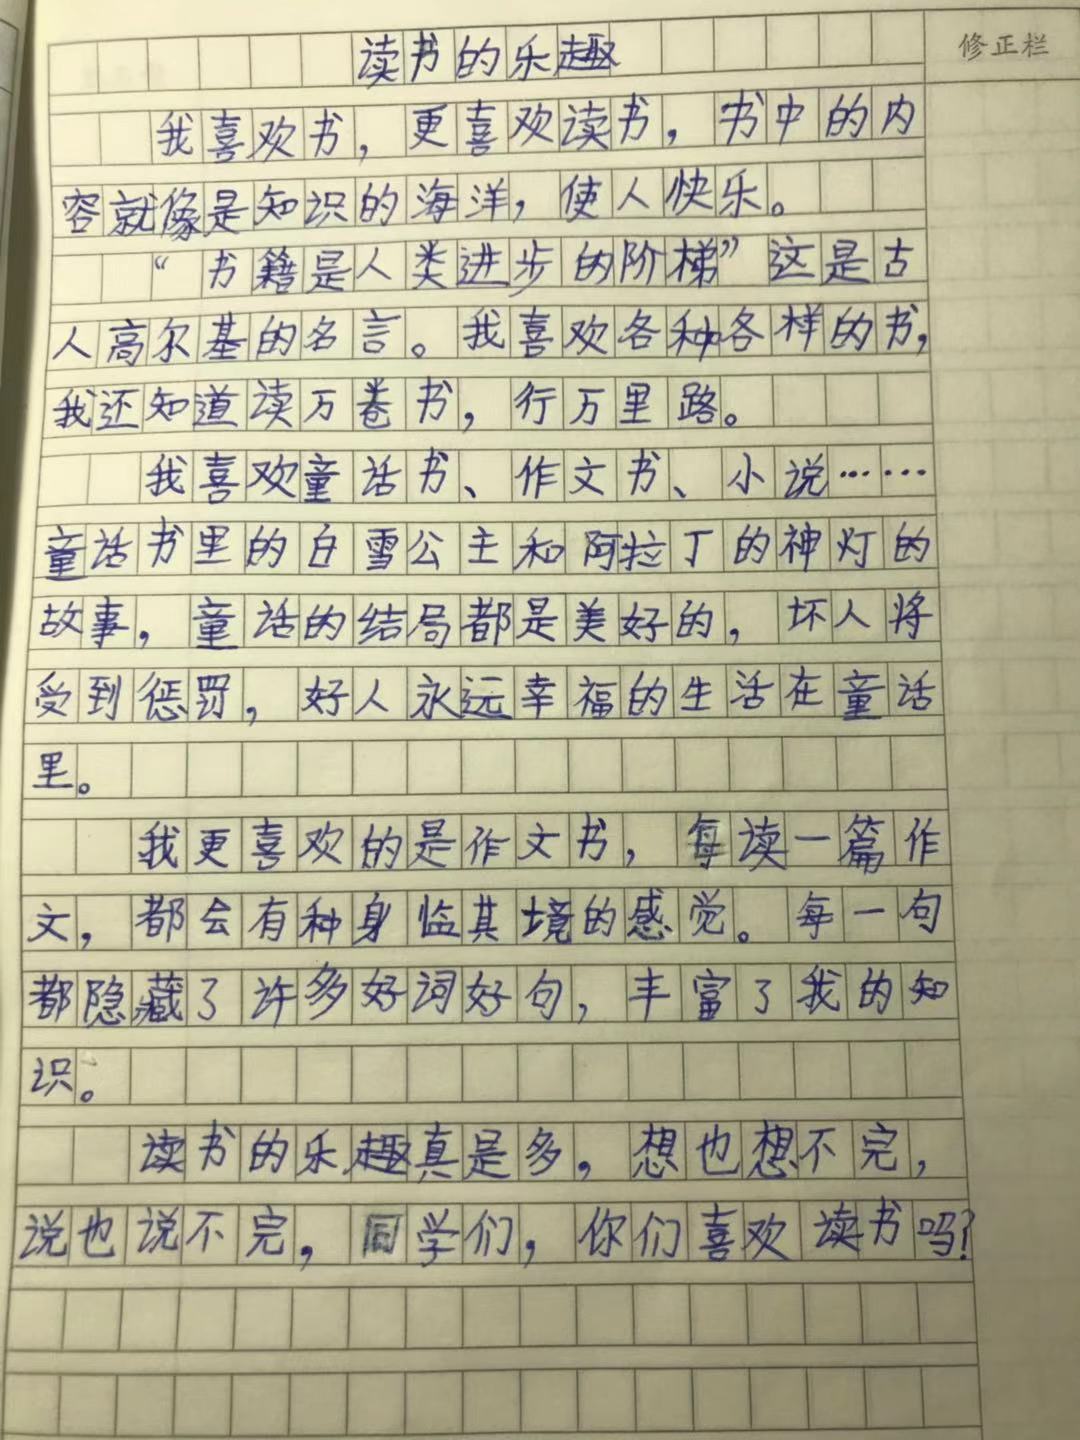 修正栏
读书的乐趣
我喜欢书，更喜欢读书，书中的内
容就像是知识的海洋，使人快乐。
“书籍是人类进步的阶梯”这是古
人高尔基的名言。我喜欢各种各样的书，
我还知道读万卷书，行万里路。
我喜欢童话书、作文书、小说……
童话书里的白雪公主和阿拉丁的神灯的
故事，童话的结局都是美好的，坏人将
受到惩罚，好人永远幸福的生活在童话
里。
我更喜欢的是作文书，每读一篇作
文，都会有种身临其境的感觉。每一句
都隐藏了许多好词好句，丰富了我的知
识。
读书的乐趣真是多，想也想不完，
说也说不完，同学们，你们喜欢读书吗？